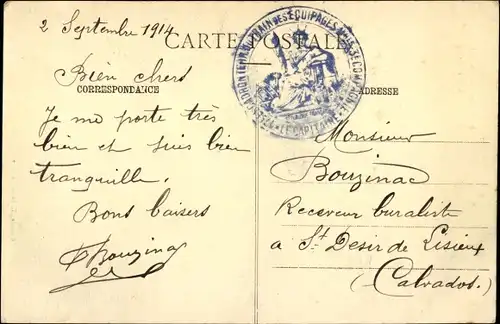 2 Septembre 1914
CARTE POSTALE
Bien chers
CORRESPONDANCE
Je me porte très
bien et suis bien
tranquille.
Bons baisers
Bouzinac
TRAIN DES ÉQUIPAGES
LE CAPITAINE
ADRESSE
Monsieur
Bouzinac
Receveur buraliste
a St Desir de Lisieux
(Calvados.)